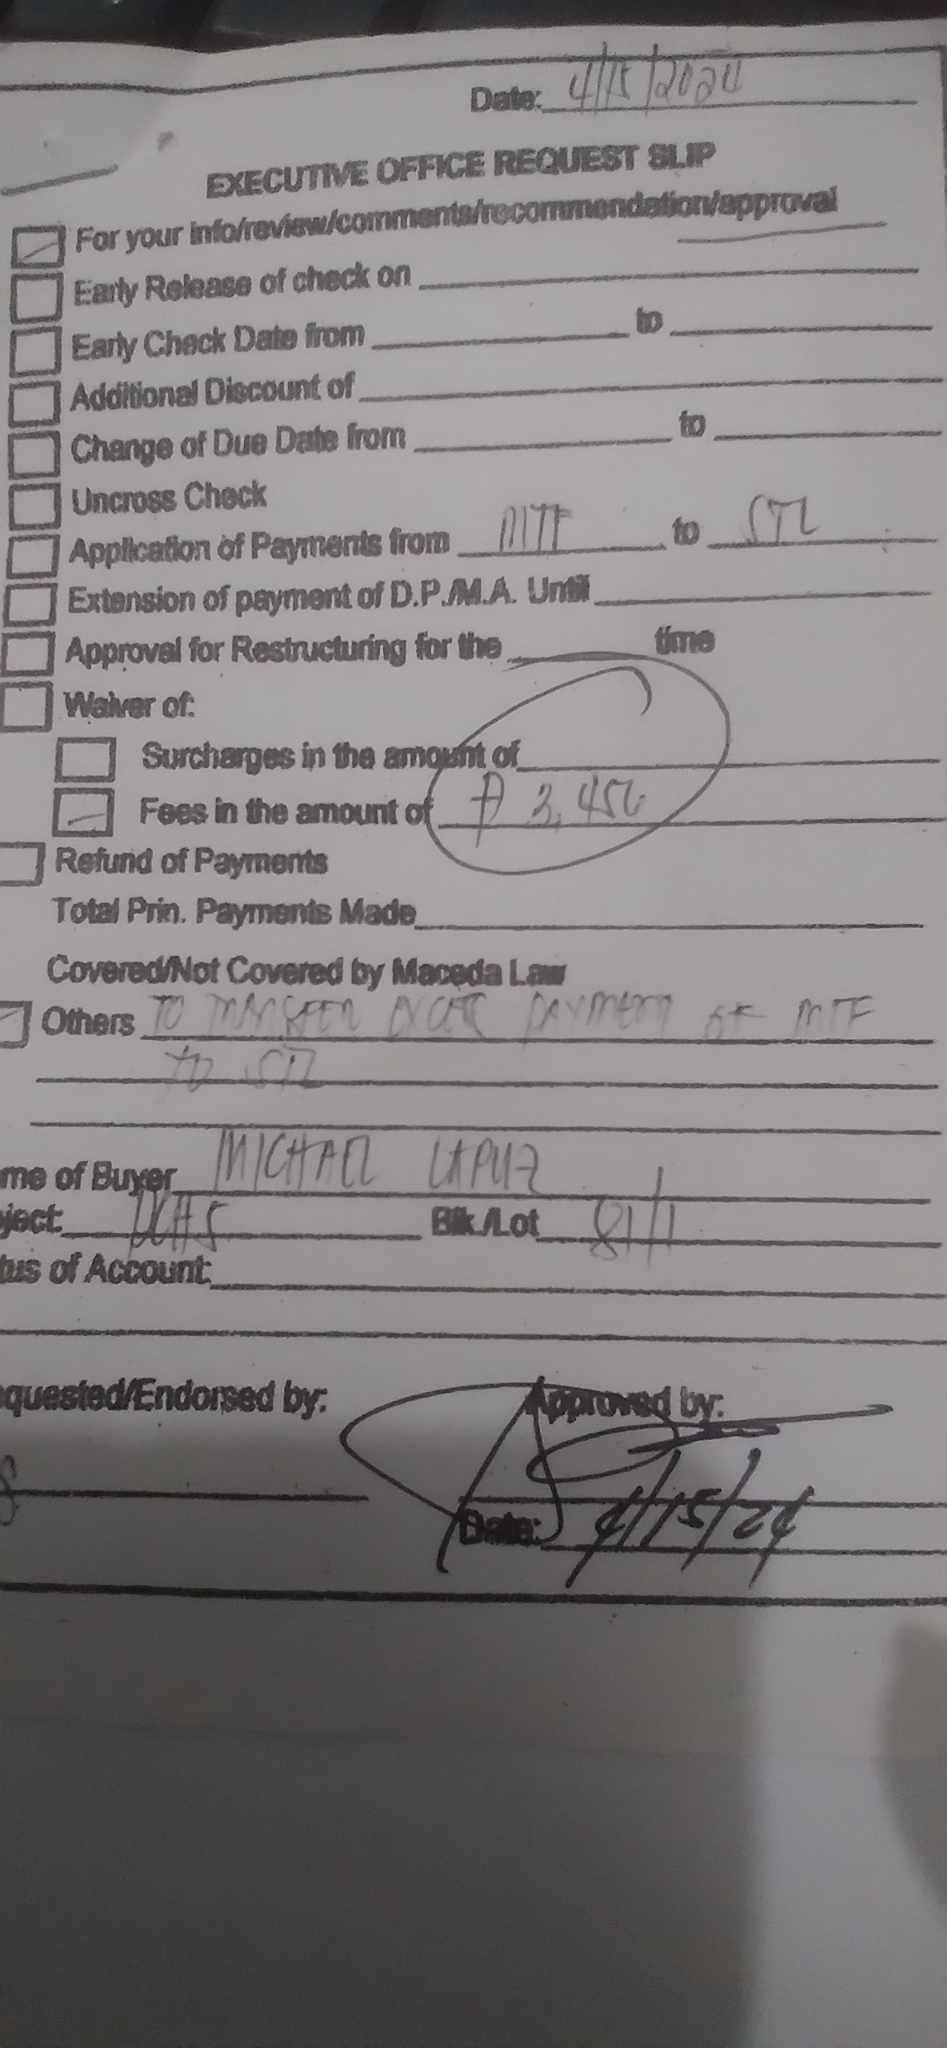 Date: 4/15/2024
EXECUTIVE OFFICE REQUEST SLIP
For your info/review/comments/recommendation/approval
Early Release of check on
Early Check Date from to
Additional Discount of
Change of Due Date from to
Uncross Check
Application of Payments from MTF to STL
Extension of payment of D.P./M.A. Until
Approval for Restructuring for the time
Waiver of:
Surcharges in the amount of
Fees in the amount of ₱ 3,456
Refund of Payments
Total Prin. Payments Made
Covered/Not Covered by Maceda Law
Others TO TRANSFER payment OF MTF
to STL
me of Buyer MICHAEL LAPUZ
ject: Blk./Lot 81/1
tus of Account:
quested/Endorsed by: Approved by:
Date: 4/15/24